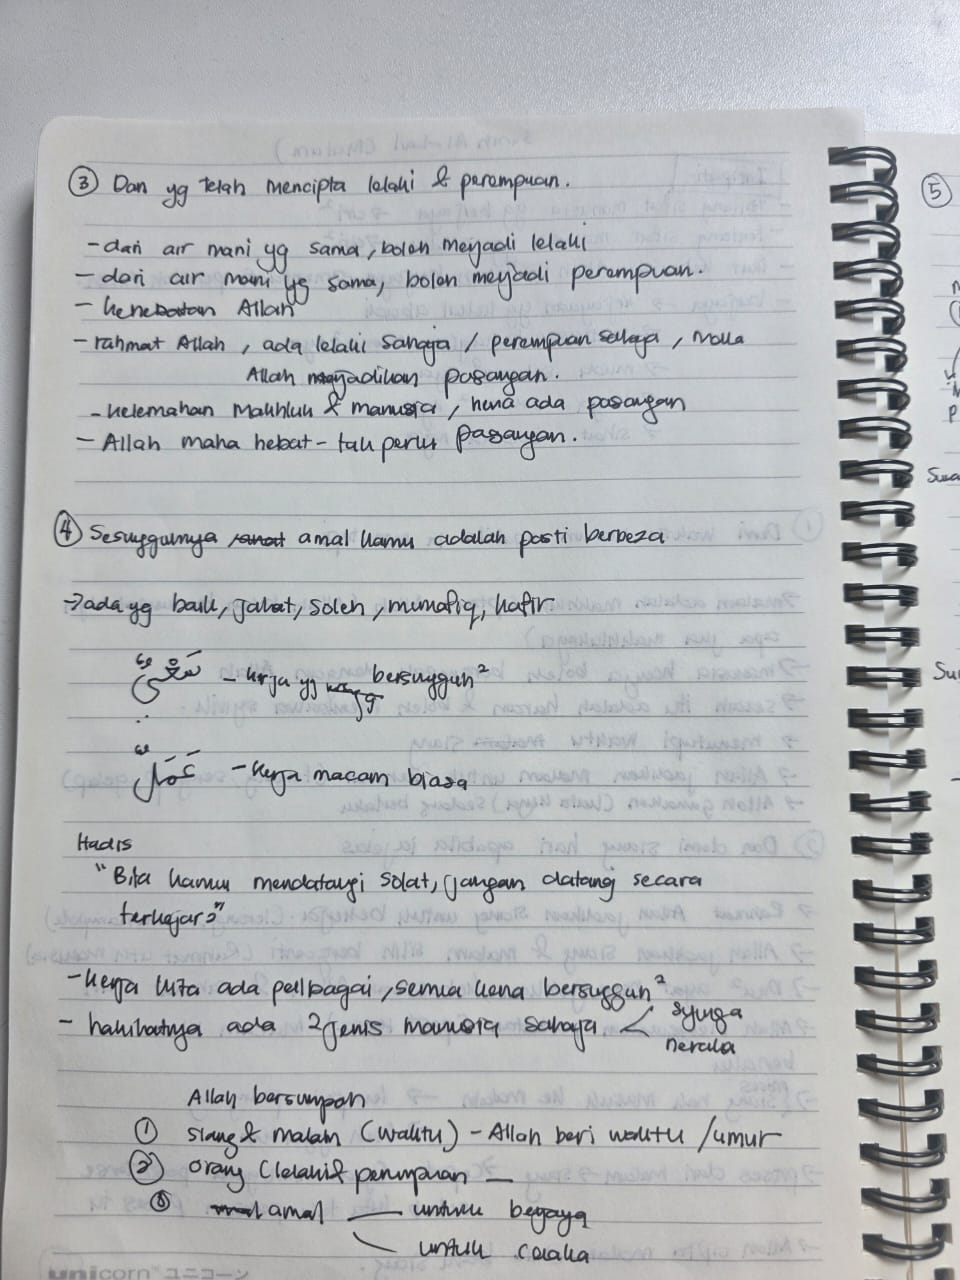 ③ Dan yg telah mencipta lelaki & perempuan.
- dari air mani yg sama, boleh mejadi lelaki
- dari air mani yg sama, boleh mejadi perempuan.
- kehebatan Allah
- rahmat Allah, ada lelaki sahaja / perempuan sahaja, maka
Allah menjadikan pasangan.
- kelemahan makhluk & manusia, kena ada pasangan
- Allah maha hebat - tak perlu pasangan.
④ Sesungguhnya amal kamu adalah pasti berbeza
→ ada yg baik, jahat, soleh, munafiq, kafir
سعى - kerja yg bersungguh²
عمل - kerja macam biasa
Hadis
"Bila kamu mendatangi solat, jangan datang secara
terkejar²"
- kerja kita ada pelbagai, semua kena bersungguh²
- hakikatnya ada 2 jenis manusia sahaja < syurga
neraka
Allah bersumpah
① siang & malam (waktu) - Allah beri waktu / umur
② orang (lelaki & perempuan —
③ amal — untuk berjaya
untuk celaka
unicorn™ ユニコーン
⑤